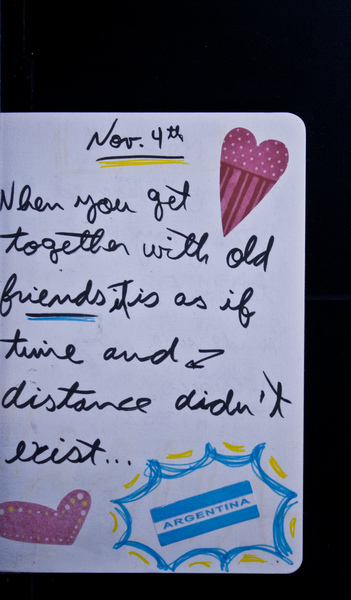 Nov. 4th
When you get
together with old
friends it is as if
time and
distance didn't
exist...
ARGENTINA